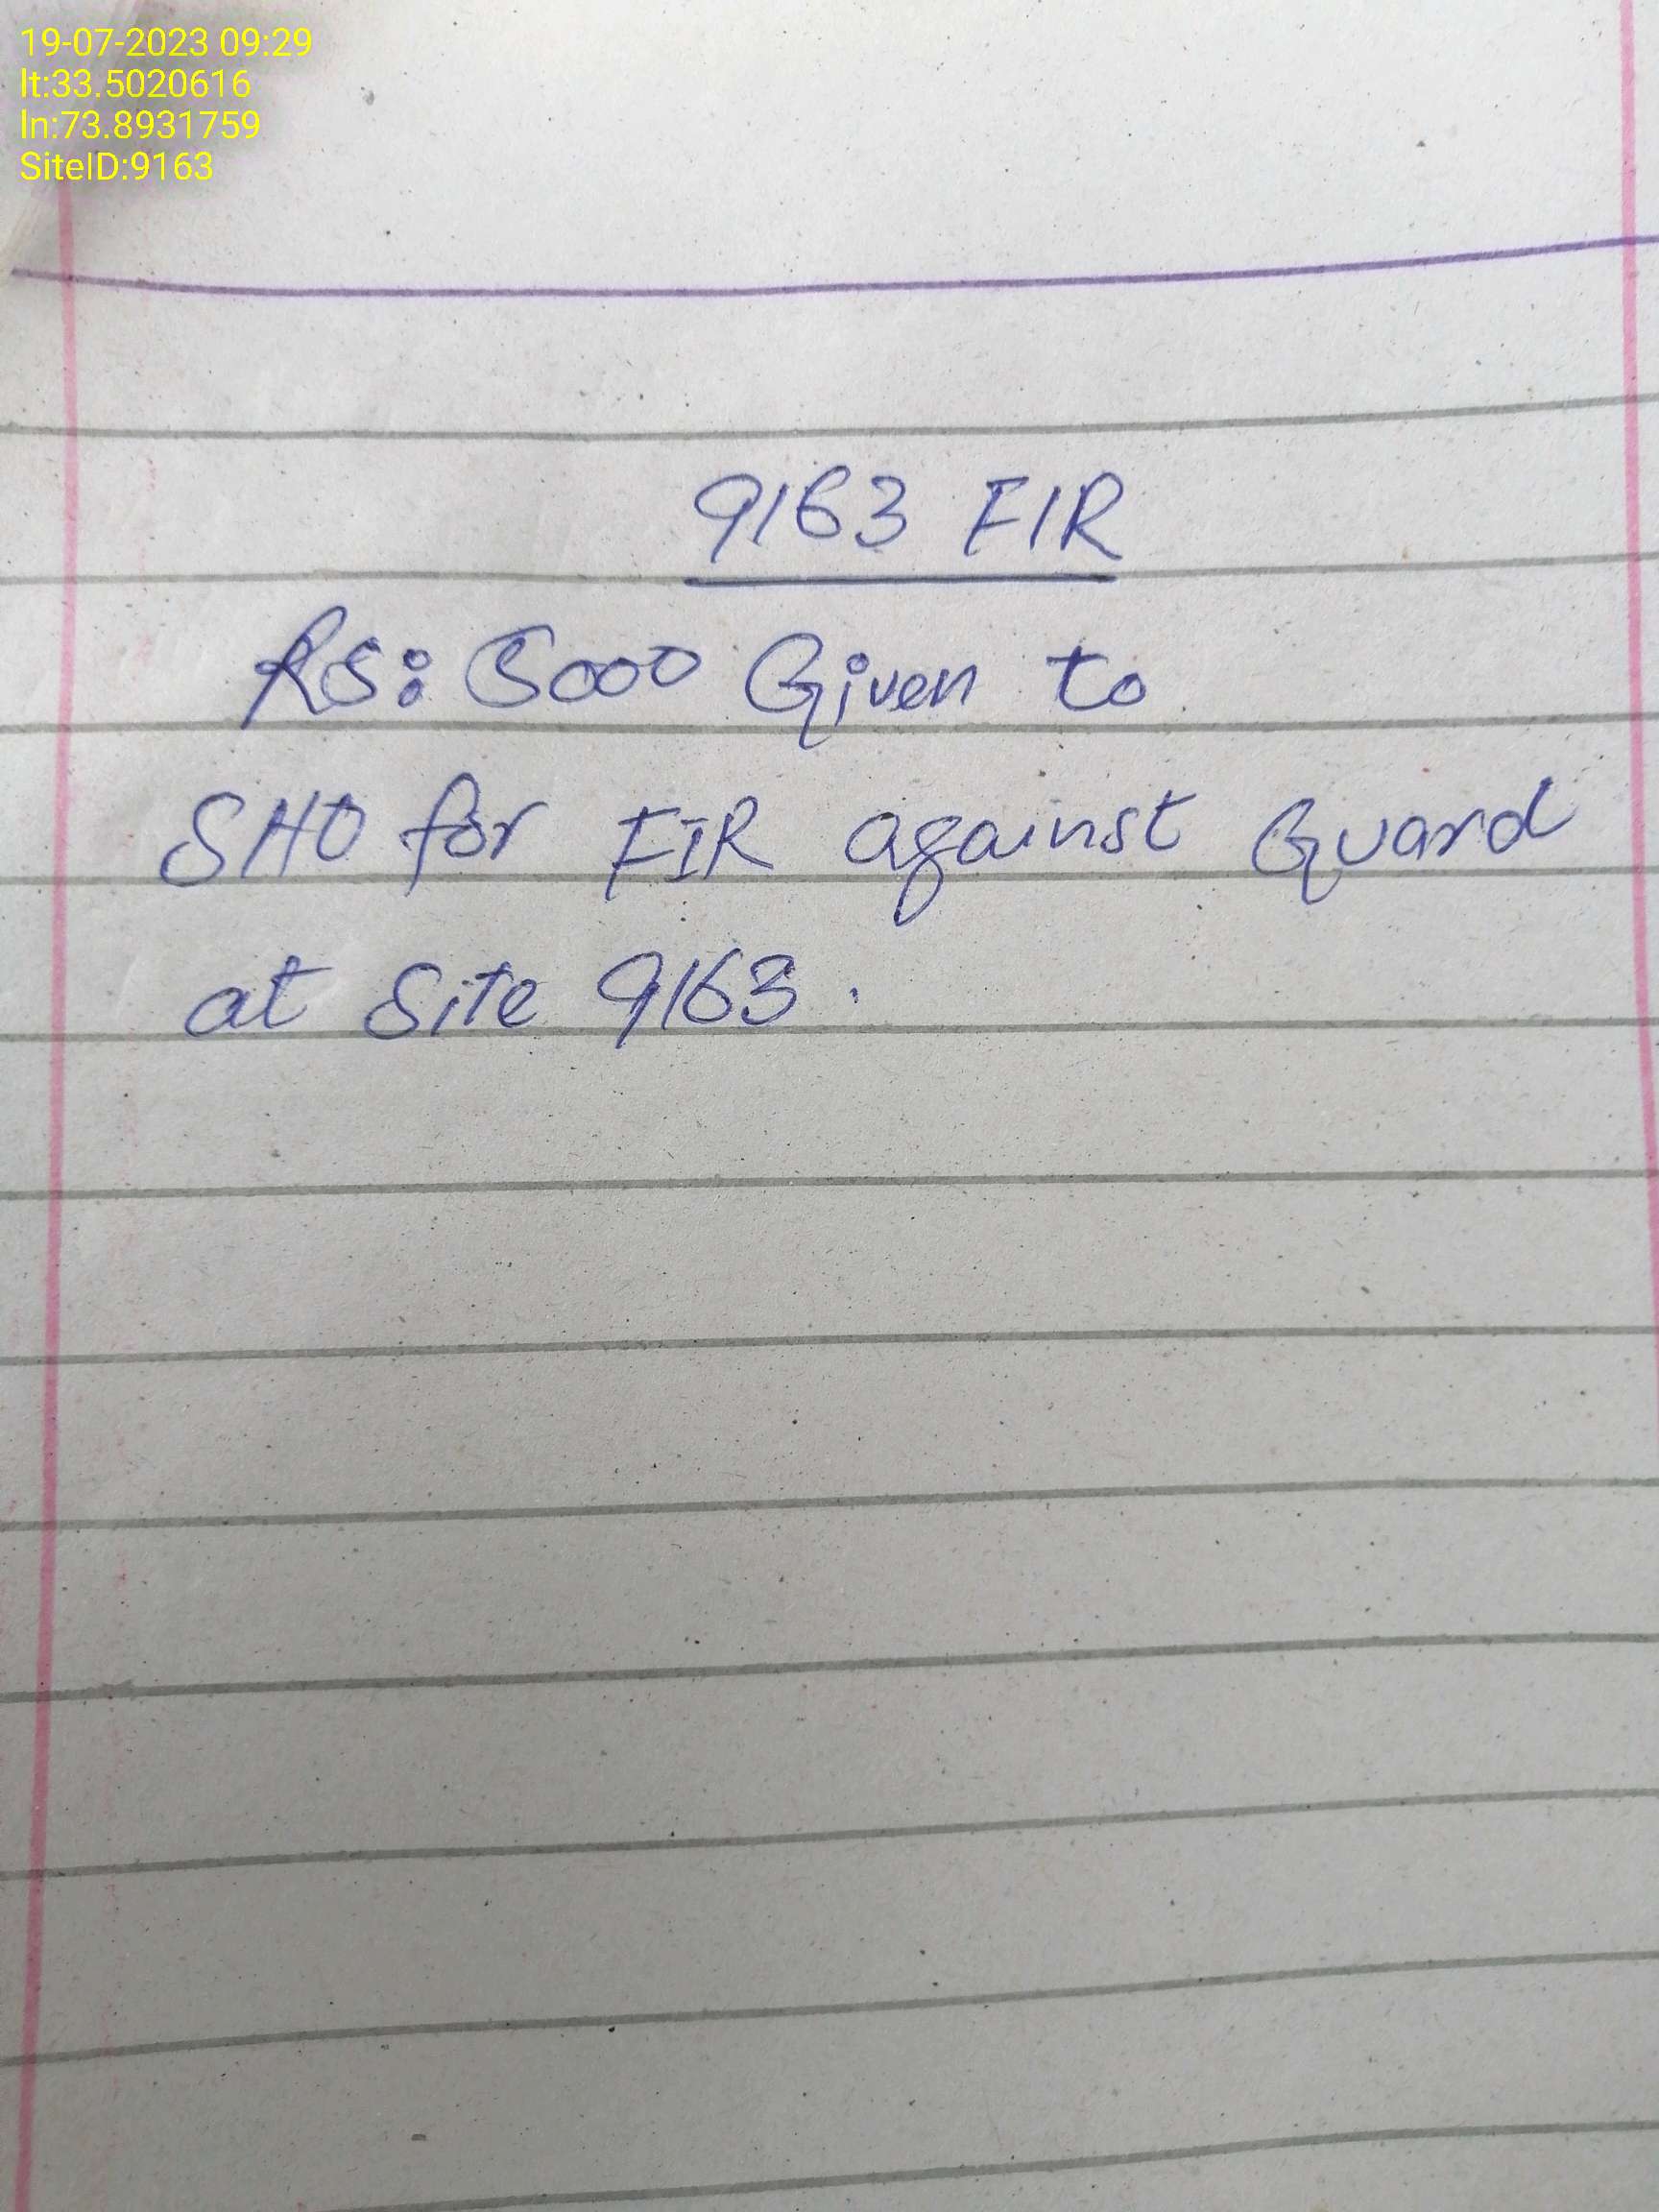 19-07-2023 09:29
lt:33.5020616
ln:73.8931759
SiteID:9163
9163 FIR
RS: 5000 Given to
SHO for FIR against Guard
at Site 9163.